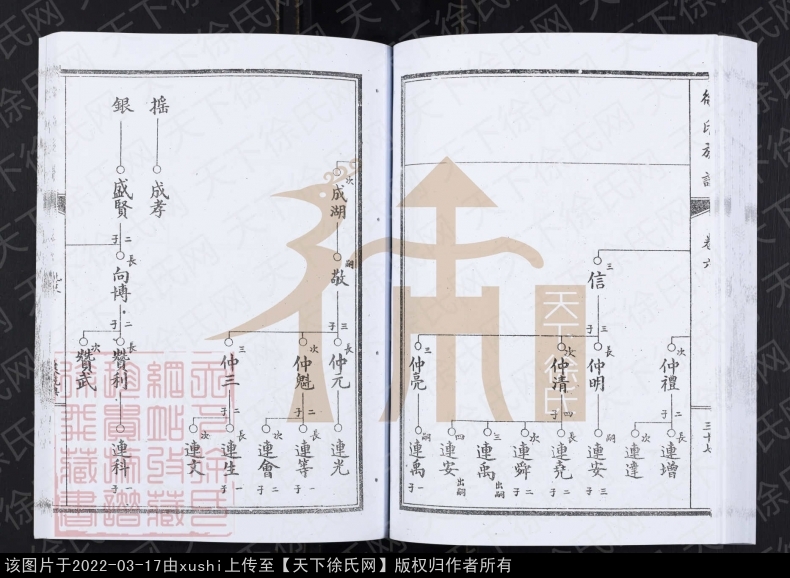 徐氏族譜
卷六
三十七
仲禮
次
二子
連增
長
連達
次
信
三
三子
仲明
長
連安
嗣
三子
仲清
次
四子
連堯
長
二子
連舜
次
二子
連禹
三
出嗣
連安
四
出嗣
仲亮
三
連禹
嗣
一子
成湖
次
敬
嗣
三子
仲元
長
連光
仲魁
次
二子
連等
長
一子
連會
次
二子
仲三
三
二子
連生
長
一子
連文
次
搖
成孝
銀
盛賢
二子
向博
長
二子
贊利
長
連科
一子
贊武
次
天下徐氏
天下徐氏网
该图片于2022-03-17由xushi上传至【天下徐氏网】版权归作者所有